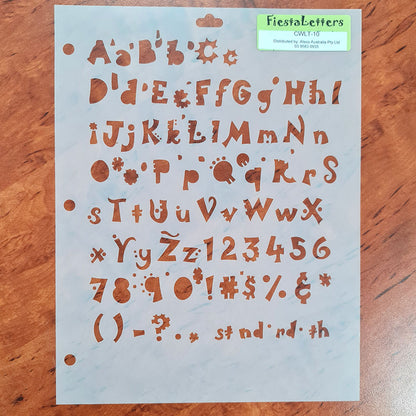 FiestaLetters
CWLT-10
Distributed by: Rossi Australia Pty Ltd
A a B b C c
D d E e F f G g H h I
i J j K k L l M m N n
O o P p Q q R r S
s T t U u V v W w X
x Y y Z z 1 2 3 4 5 6
7 8 9 0 ! # $ % & *
( ) - ? . , st nd rd th